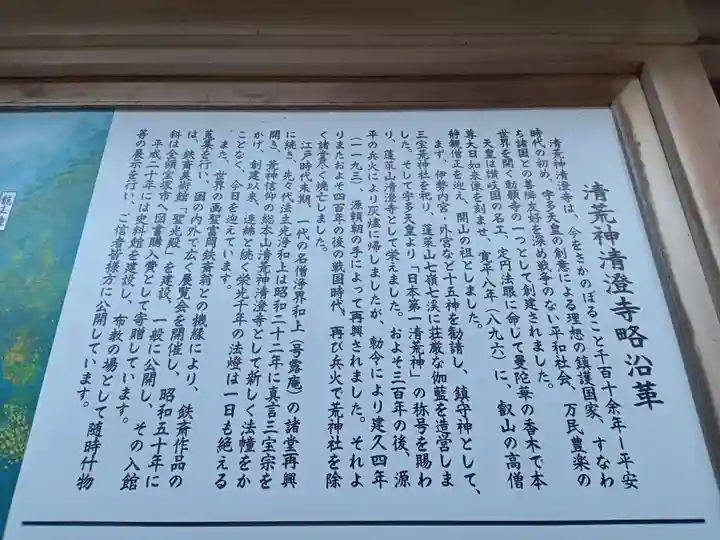 清荒神清澄寺略沿革
清荒神清澄寺は、今をさかのぼること千百十余年ー平安
時代の初め、宇多天皇の創意による理想の鎮護国家、すなわ
ち諸国との善隣友好を深め戦争のない平和社会、万民豊楽の
世界を開く勅願寺の一つとして創建されました。
天皇は讃岐国の名工、定円法眼に命じて曼陀華の香木で本
尊大日如来像を刻ませ、寛平八年(八九六)に、叡山の高僧
静観僧正を迎え、開山の祖としました。
まず、伊勢内宮・外宮など十五神を勧請し、鎮守神として、
三宝荒神社を祀り、蓬莱山七嶺七渓に荘厳な伽藍を造営しま
した。そして宇多天皇より「日本第一清荒神」の称号を賜わ
り、蓬莱山清澄寺として栄えました。およそ三百年の後、源
平の兵火により灰燼に帰しましたが、勅令により建久四年
(一一九三)、源頼朝の手によって再興されました。それよ
りまたおよそ四百年の後の戦国時代、再び兵火で荒神社を除
く諸堂悉く焼亡しました。
江戸時代末期、一代の名僧浄界和上(号露庵)の諸堂再興
に続き、先々代法主光浄和上は昭和二十二年に真言三宝宗を
開き、荒神信仰の総本山清荒神清澄寺として新しく法幢をか
かげ、創建以来、連綿と続く栄光千年の法燈は一日も絶える
ことなく、今日を迎えています。
また、世界の画聖富岡鉄斎翁との機縁により、鉄斎作品の
蒐集を行い、国の内外で広く展覧会を開催し、昭和五十年に
は、鉄斎美術館「聖光殿」を建設、一般に公開し、その入館
料は全額宝塚市へ図書購入費として寄贈しています。
平成二十年には史料館を建設し、布教の場として随時什物
等の展示を行い、ご信者皆様方に公開しています。